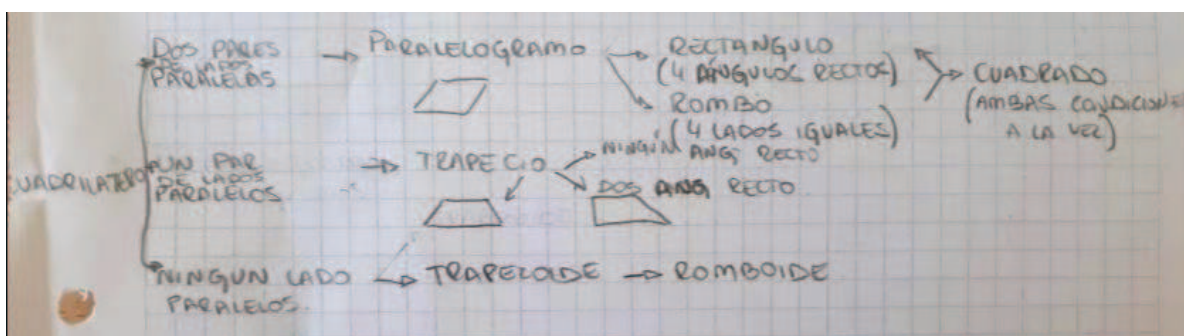 DOS PARES
DE LADOS
PARALELAS
PARALELOGRAMO
RECTANGULO
(4 ÁNGULOS RECTOS)
ROMBO
(4 LADOS IGUALES)
CUADRADO
(AMBAS CONDICIONE
A LA VEZ)
CUADRILATERO
UN PAR
DE LADOS
PARALELOS
TRAPECIO
NINGÚN
ANG RECTO
DOS ANG RECTO
NINGUN LADO
PARALELOS.
TRAPEZOIDE
ROMBOIDE